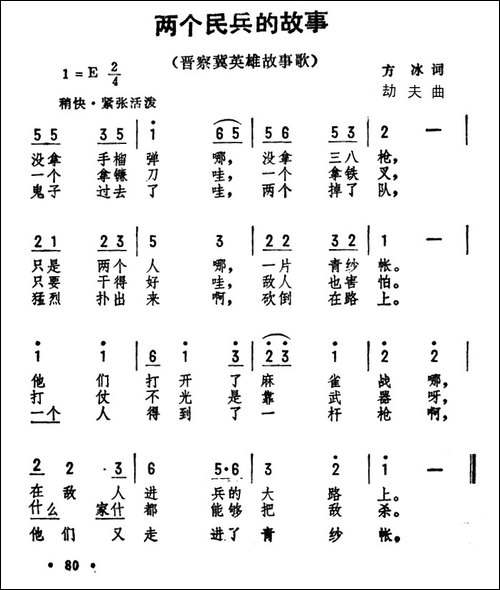 两个民兵的故事
（晋察冀英雄故事歌）
1=E 2/4
方冰词
劫夫曲
稍快·紧张活泼
5 5 3 5 | i (6 5) | 5 6 5 3 | 2 —
没拿 手榴 弹 哪， 没拿 三八 枪，
一个 拿镰 刀 哇， 一个 拿铁 叉，
鬼子 过去 了 哇， 两个 掉了 队，
2 1 2 3 | 5 3 | 2 2 3 2 | 1 —
只是 两个 人 哪， 一片 青纱 帐。
只要 干得 好 哇， 敌人 也害 怕。
猛烈 扑出 来 啊， 砍倒 在路 上。
i i | 6 i 3̇ | (2̇ 3̇) i | 2̇ 2̇
他 们 打 开 了 麻 雀 战 哪，
打 仗 不 光 是 靠 武 器 呀，
一个 人 得 到 了 一 杆 枪 啊，
2 2 3 | 6 5·6 | 3 2̇ | i —
在 敌 人 进 兵的 大 路 上。
什么 家什 都 能够 把 敌 杀。
他 们 又 走 进了 青 纱 帐。
·80·